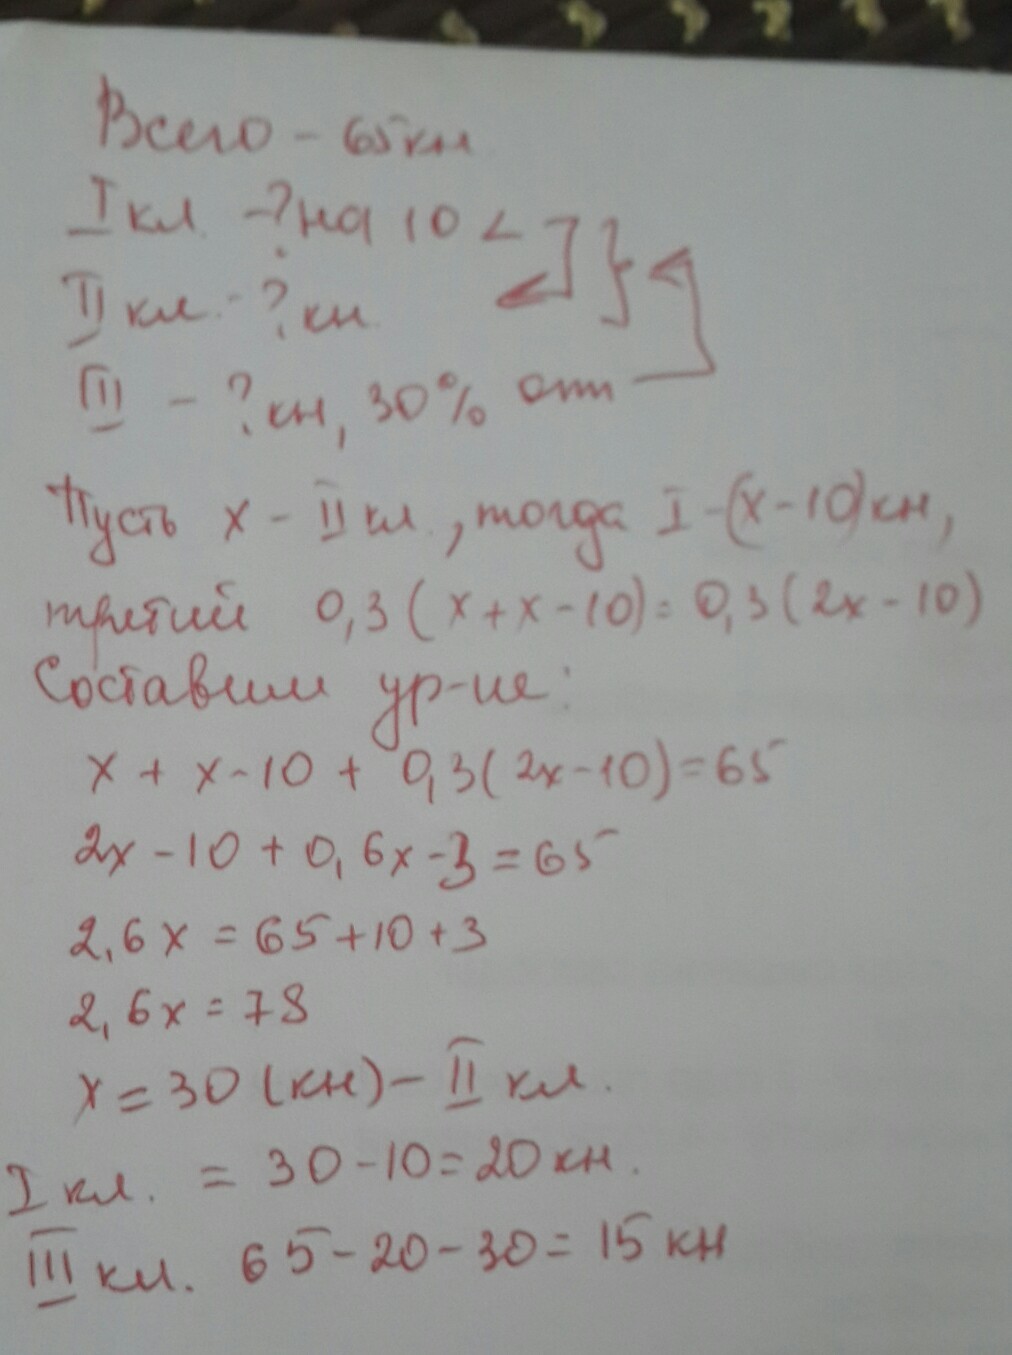 Всего - 65 кн
I кл - ? на 10 <
II кл. - ? кн
III - ? кн, 30% от
Пусть x - II кл., тогда I - (x-10) кн,
третий 0,3(x+x-10)=0,3(2x-10)
Составим ур-ие:
x + x-10 + 0,3(2x-10)=65
2x-10+0,6x-3=65
2,6x=65+10+3
2,6x=78
x=30 (кн) - II кл.
I кл. = 30-10=20 кн.
III кл. 65-20-30=15 кн